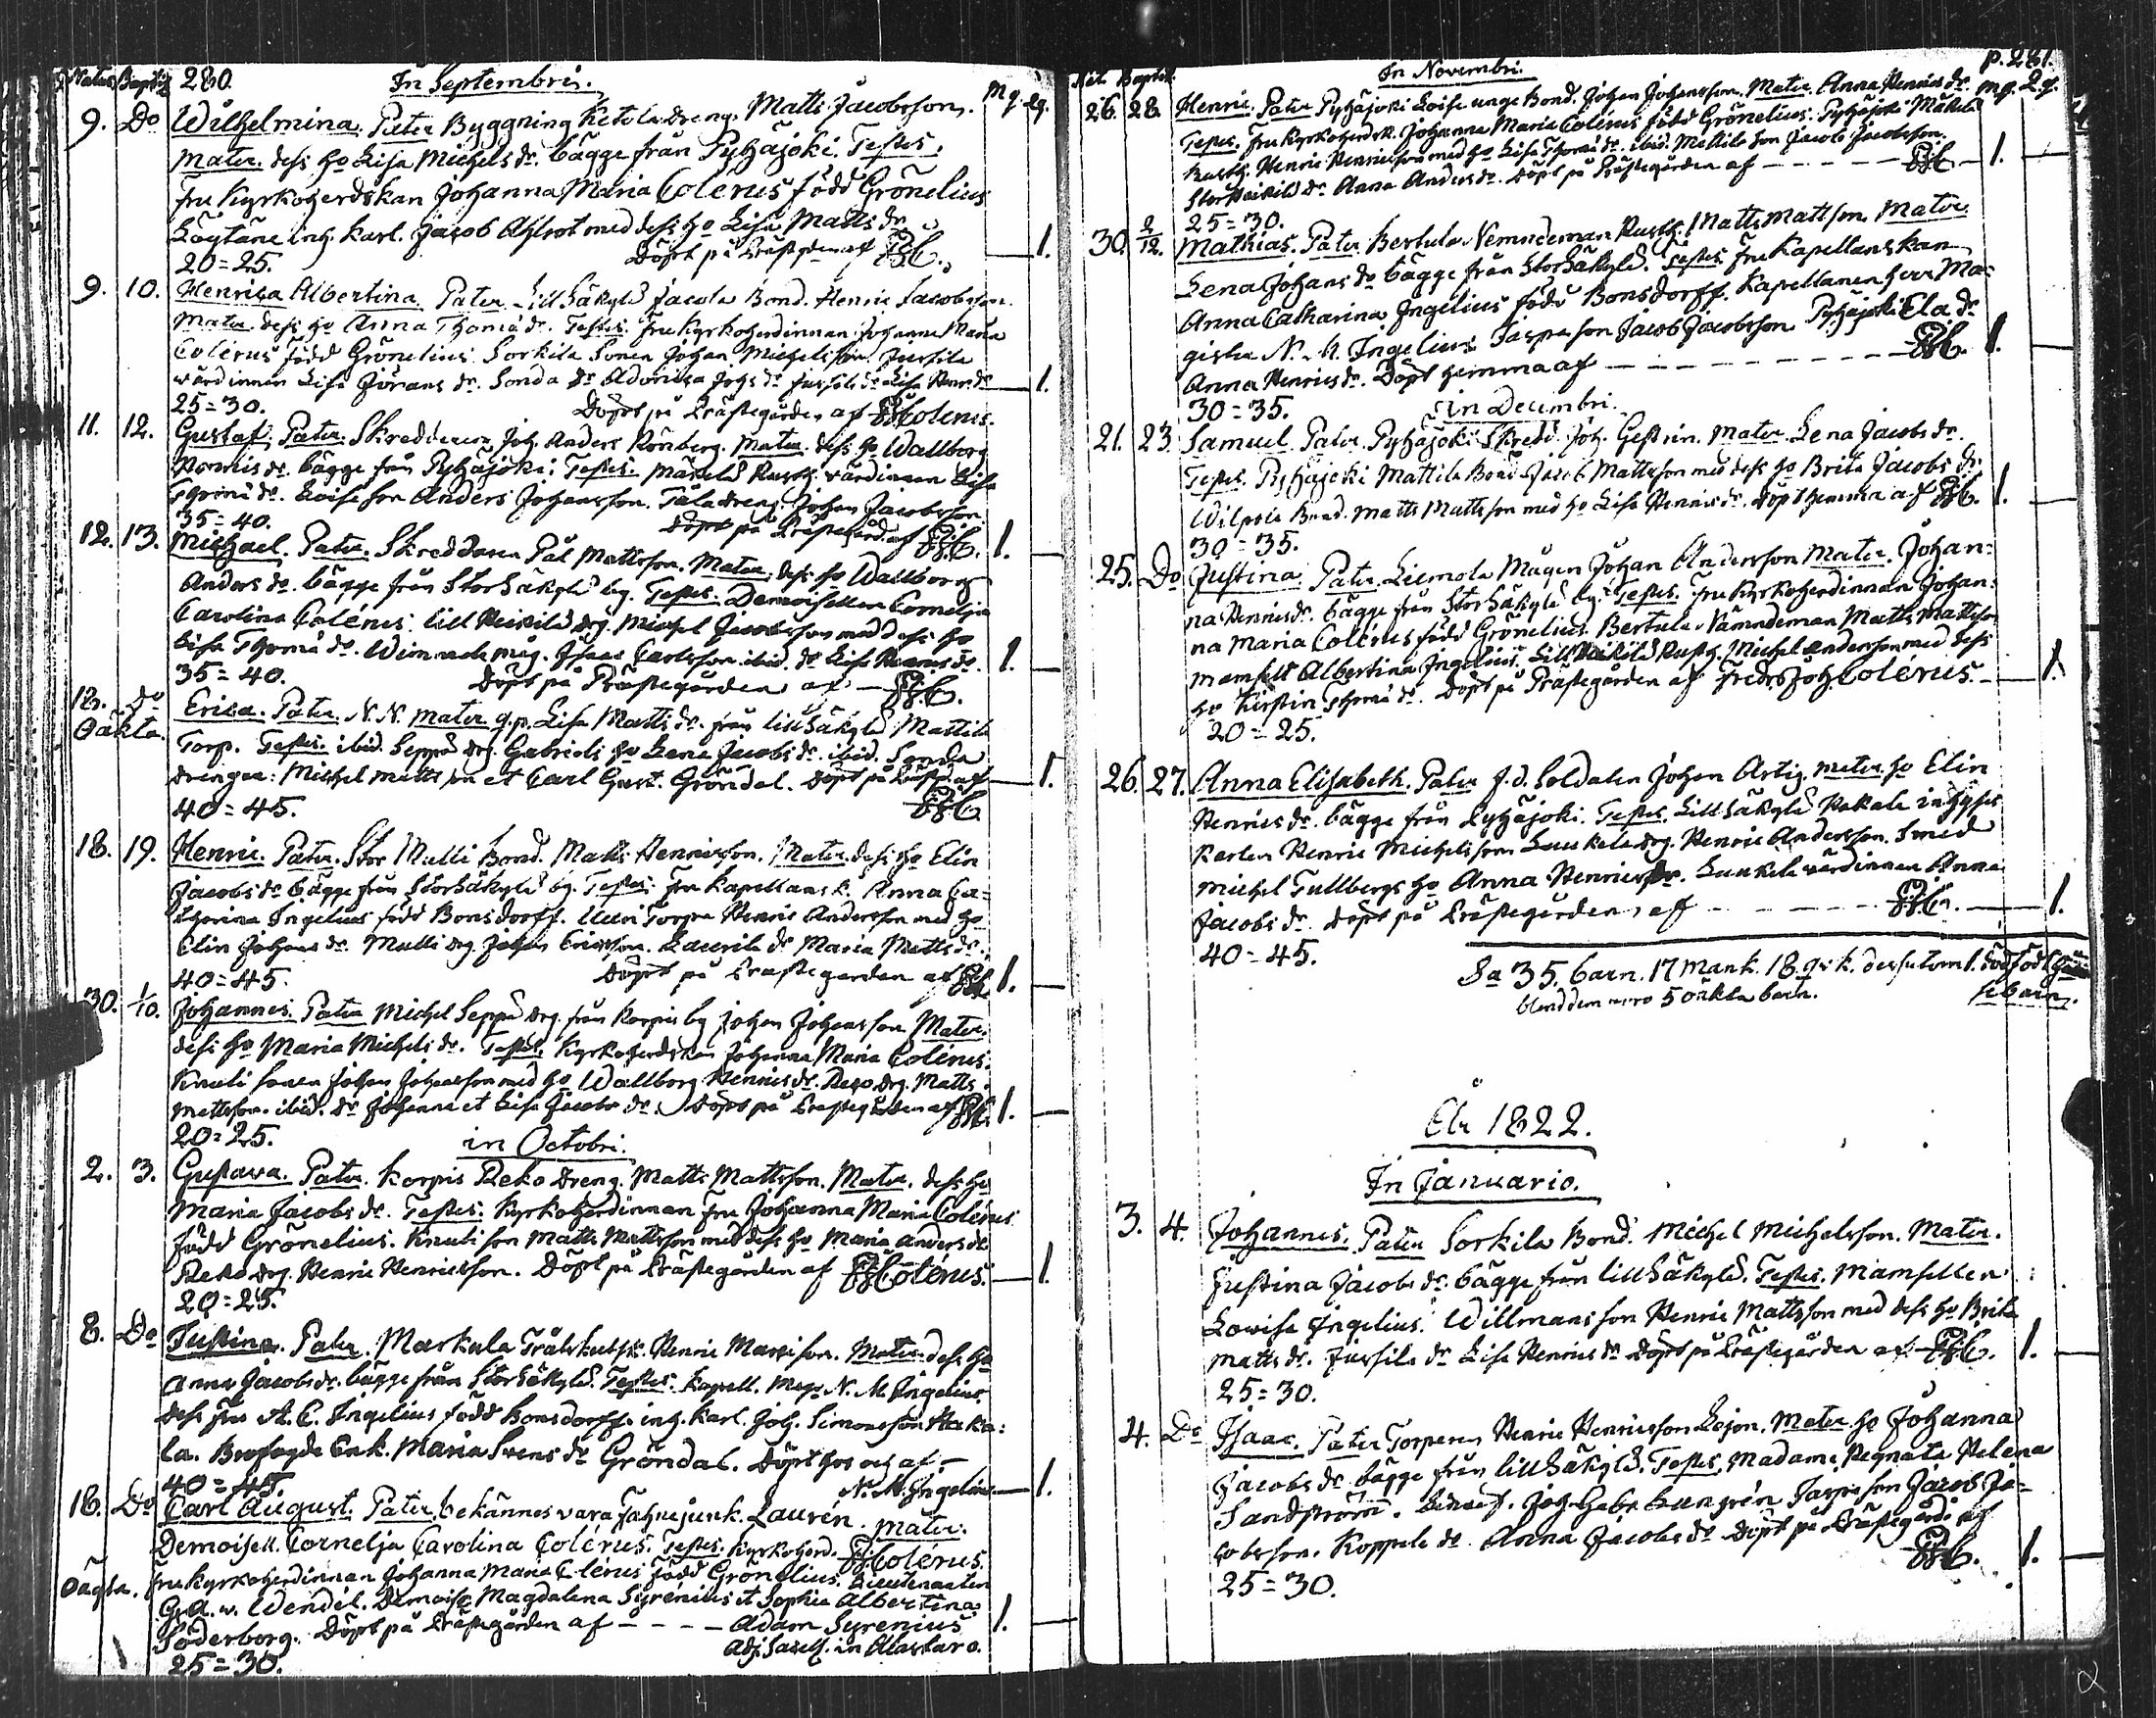 Natus Baptiz 280. In Septembri. Mq. Qq.
9. Do Wilhelmina. Pater Byggning Ketola dreng. Matts Jacobsson.
Mater. dess ho Lisa Michels dr. bägge från Pyhäjoki. Testes.
fru Kyrkoherdskan Johanna Maria Colérus född Grönelius
inh. Karl. Jacob med dess ho Lisa Matts dr
20=25. Döpt på Prästg. af FJC. 1.
9. 10. Henrica Albertina. Pater. Lill Säkylä Jacola Bond. Henric Jacobsson.
Mater. dess ho Anna Thomæ dr. Testes. fru Kyrkoherdinnan Johanna Maria
Colérus född Grönelius. Sorkila Sonen Johan Michelsson. Jussila
värdinnan Lisa Jörans dr. Sonda dr Jussila dr Lisa Henr. dr 1.
25=30. Döpt på Prästegården af FJColerus.
11. 12. Gustaf. Pater. Skreddaren Joh. Anders Rönberg. Mater. dess ho Wallborg
Henrics dr. bägge från Pyhäjoki. Testes. Mäkelä Rusth. värdinnan Lisa
Thomæ dr. Loise son Anders Johansson. Tala dreng. Johan Jacobsson.
35=40. Döpt på Prästegård. af FJC. 1.
12. 13. Michael. Pater. Skreddaren Pål Mattsson. Mater. dess ho Wallborg
Anders dr. bägge från Storsäkylä by. Testes. Demoisellen Cornelja
Carolina Colérus. Lill Heikilä drg. Michel Jacobsson med dess ho
Lisa Thomæ dr. måg. Isaac Carlsson. ibid. dr Lisa Henrics dr. 1.
35=40. Döpt på Prästegården af FJC.
13. Do Erica. Pater. N.N. Mater q.p. Lisa Matts dr. från Lillsäkylä Mattila
Oäkta. Torp. Testes. ibid. Seppä drg. Gabriels ho Lena Jacobs dr. ibid. Sonda
drengar: Michel Mattsson et Carl Gust. Gröndal. Döpt på Prästg. af 1.
40=45. FJC
18. 19. Henric. Pater. Stor Mulli Bond. Matts Henricsson. Mater. dess ho Elin
Jacobs dr. bägge från Storsäkylä by. Testes. fru Kapellansk. Anna Ca=
tharina Ingelius född Bonsdorff. Torpen Henric Andersson med ho
Elin Johans dr. Mulli drg. Johan Ericsson. Laurila dr Maria Matts dr.
40=45. Döpt på Prästegården af FJC. 1.
30. 1/10. Johannes. Pater Michel Seppä drg. från Korpis by Johan Johansson Mater.
dess ho Maria Michels dr. Testes. Kyrkoherdskan Johanna Maria Colérus.
Knuti sonen Johan Johansson med ho Wallborg Henrics dr. Reko drg. Matts
Mattsson. ibid. dr Johanna et Lisa Jacobs dr. Döpt på Prästegården af FJC. 1.
20=25. in Octobri.
2. 3. Gustava. Pater. Korpis Reko Dreng. Matts Mattsson. Mater. dess ho
Maria Jacobs dr. Testes. Kyrkoherdinnan fru Johanna Maria Colérus
född Grönelius. Knuti son Matts Mattsson med dess ho Maria Anders dr.
Reko drg. Henric Henricsson. Döpt på Prästegården af FJColérus. 1.
20=25.
8. Do Justina. Pater. Markula Henric Mansson. Mater. dess ho
Anna Jacobs dr. bägge från Storsäkylä. Testes. Kapell. Mag. N. M. Ingelius.
dess fru A. C. Ingelius född Bonsdorff. inh. Karl. Joh. Simonsson Haka=
la. Enk. Maria Svens dr Gröndal. Döpt hos och af
40=45. N. M. Ingelius 1.
18. Do Carl August. Pater, bekännes vara Fahnejunk. Laurén. Mater.
Demoisell. Cornelja Carolina Colérus. Testes. Kyrkoherd. FJColérus.
Oägta. fru Kyrkoherdinnan Johanna Maria Colérus född Grönelius. Lieutenanten
G.A. v. Wendel. Demoise. Magdalena Syrénius et Sophia Albertina
Söderborg. Döpt på Prästegården af Adam Syrenius 1.
25=30. Adj. Sacell. in Alastaro.
Nat. Baptiz. In Novembri. p. 281.
26. 28. Henric. Pater Pyhäjoki Loise unge Bond. Johan Johansson. Mater. Anna Henrics dr. Mq. Qq.
Testes. fru Kyrkoherdsk. Johanna Maria Colérus född Grönelius. Pyhäjoki Mäkelä
Rusth. Henric Henricsson med ho Lisa Thomæ dr. ibid. Mattila son Jacob Jacobsson.
Stor Heikilä dr. Anna Anders dr. Döpt på Prästegården af FJC. 1.
25=30.
30. 2/12. Mathias. Pater. Bertula Nemndeman Rusth. Matts Mattsson. Mater
Lena Johans dr bägge från Storsäkylä. Testes. fru Kapellanskan
Anna Catharina Ingelius född Bonsdorff. Kapellanen herr Ma=
gister N. M. Ingelius. Jaspa son Jacob Jacobsson. Pyhäjoki Ela dr
Anna Henrics dr. Döpt hemma af FJC. 1.
30=35. in Decembri.
21. 23. Samuel. Pater. Pyhäjoki Skredd. Joh. Gestrin. Mater. Lena Jacobs dr.
Testes. Pyhäjoki Mattila Bond. Jacob Mattsson med dess ho Brita Jacobs dr.
Bond. Matts Mattsson med ho Lisa Henrics dr. Döpt hemma af FJC. 1.
30=35.
25. Do Justina. Pater. Liemola Mågen Johan Andersson Mater. Johan=
na Henrics dr. bägge från Storsäkylä by. Testes. fru Kyrkoherdinnan Johan=
na Maria Colérus född Grönelius. Bertula Nämndeman Matts Mattsson
Mamsell Albertina Ingelius. Lill Heikilä Rusth. Michel Andersson med dess
ho Kirstin Thomæ dr. Döpt på Prästegården af Fredr. Joh. Colérus. 1.
20=25.
26. 27. Anna Elisabeth. Pater f.d. Soldaten Johan Artig. Mater. ho Elin
Henrics dr. bägge från Pyhäjoki. Testes. Lillsäkylä Hakala inhyses
Karlen Henric Michelsson. Lunkela drg. Henric Andersson. Smed
Michel Tullbergs ho Anna Henrics dr. Lunkela värdinnan Anna
Jacobs dr. Döpt på Prästegården, af FJC. 1.
40=45.
Sa 35. barn. 17 mank. 18. qvk. dessutom 1. dödfödt
bland dem woro 5 oäkta barn. barn.
År 1822.
In Januario.
3. 4. Johannes. Pater Sorkila Bond. Michel Michelsson. Mater.
Justina Jacobs dr. bägge från Lillsäkylä. Testes. Mamsellen
Lowisa Ingelius. Willmans son Henric Mattsson med dess ho Brita
Matts dr. Jussila dr Lisa Henrics dr Döpt på Prästegården af FJC. 1.
25=30.
4. Do Isaac. Pater Torparen Henric Henricsson Lejon. Mater. ho Johanna
Jacobs dr bägge från Lillsäkylä. Testes. Madame Regnata Helena
Sandström. Joh. Gabr. Lungrén Jaspa son Jacob Ja=
cobsson. Koppela dr Anna Jacobs dr Döpt på Prästegård. af
FJC. 1.
25=30.